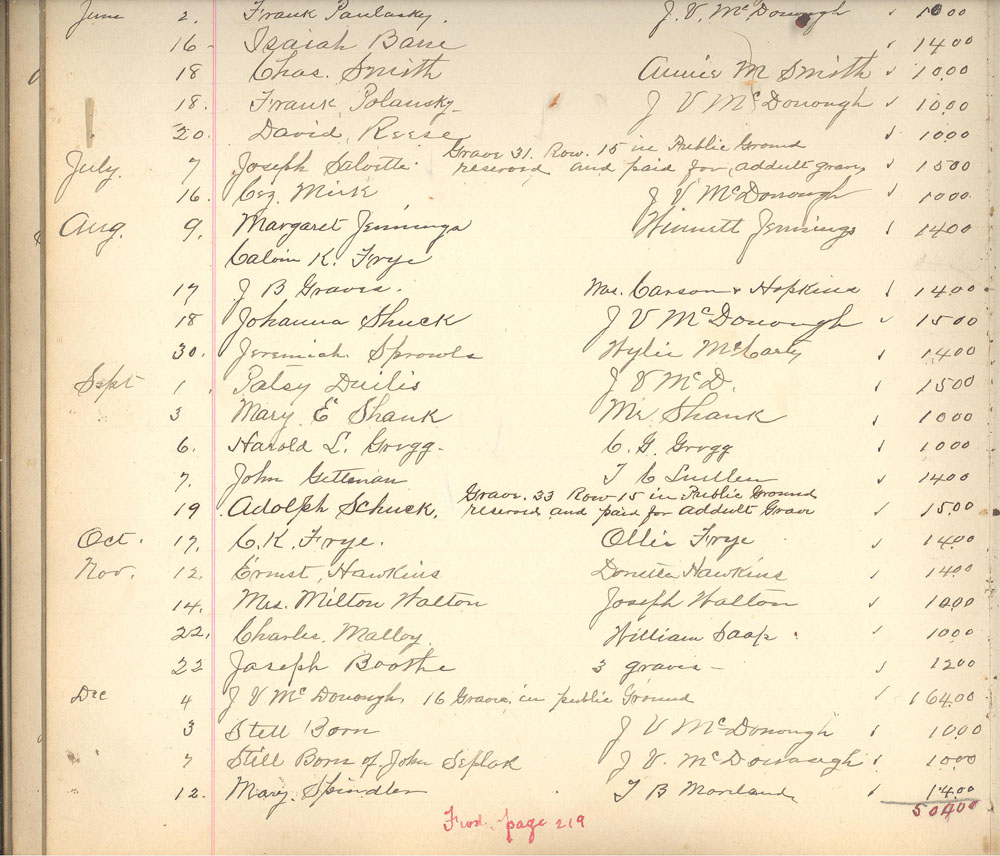 June 2. Frank Paulasky. J. V. McDonough 1000
16 Isaiah Bane 1400
18 Chas. Smith Annie M Smith 1000
18. Frank Polansky J V McDonough 1000
20. David Reese 1000
Grave 31. Row. 15 in Public Ground
July. 7 Joseph Salvotte reserved and paid for addult grave 1500
16. J V McDonough 1000
Aug. 9. Margaret Jennings Winnett Jennings 1400
Calvin K. Frye
17 J B Graves. Carson & Hopkins 1400
18 Johanna Shuck J V McDonough 1500
30. Jeremiah Sprowls Wylie McCarty 1400
Sept 1 Patsy J V McD. 1500
3 Mary E Shank Mr Shank 1000
6. Harold L. Grigg C. G. Grigg 1000
7. John 1400
Grave. 33 Row 15 in Public Ground
19 Adolph Schuck. reserved and paid for addult Grave 1500
Oct. 17. C. K. Frye. Ollie Frye 1400
Nov. 12. Ernst Hawkins Hawkins 1400
14. Mrs. Milton Walton Joseph Walton 1000
22. Charles Malloy. William 1000
22 Joseph Boothe 3 graves 1200
Dec 4 J V McDonough 16 Graves in public Ground 164.00
3 Still Born J V McDonough 1000
7 Still Born of John Seplak J. V. McDonough 1000
" 12. Mary Spindler T B Moreland 1400
50400
Fwd. page 219